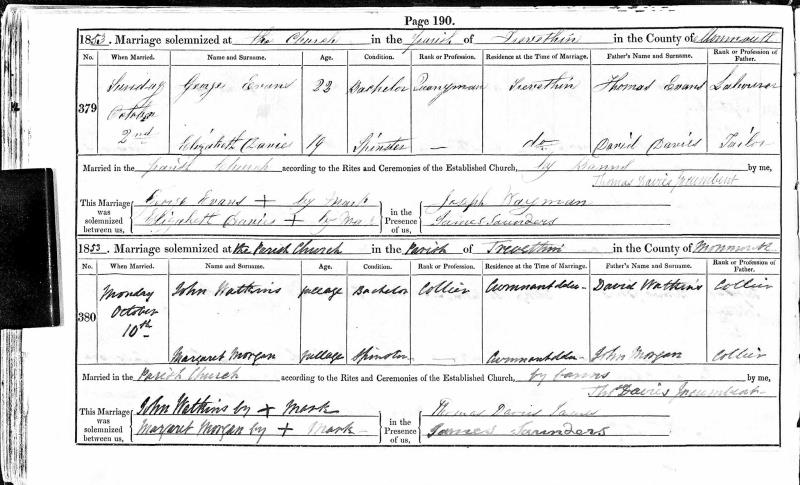 Page 190.
1853. Marriage solemnized at the Church in the Parish of Trevethin in the County of Monmouth
No. When Married. Name and Surname. Age. Condition. Rank or Profession. Residence at the Time of Marriage. Father's Name and Surname. Rank or Profession of Father.
379 Sunday October 2nd George Evans 22 Bachelor Quarryman Trevethin Thomas Evans Labourer
Elizabeth Davies 19 Spinster — do David Davies Tailor
Married in the Parish Church according to the Rites and Ceremonies of the Established Church, by Banns by me,
Thomas Davies Incumbent
This Marriage was solemnized between us, George Evans + by Mark in the Presence of us, Joseph
Elizabeth Davies + by Mark James Saunders
1853. Marriage solemnized at the Parish Church in the Parish of Trevethin in the County of Monmouth
No. When Married. Name and Surname. Age. Condition. Rank or Profession. Residence at the Time of Marriage. Father's Name and Surname. Rank or Profession of Father.
380 Monday October 10th John Watkins fullage Bachelor Collier David Watkins Collier
Margaret Morgan fullage Spinster — John Morgan Collier
Married in the Parish Church according to the Rites and Ceremonies of the Established Church, by banns by me,
Thos Davies Incumbent
This Marriage was solemnized between us, John Watkins by + Mark in the Presence of us, Thomas Davies
Margaret Morgan by + Mark James Saunders